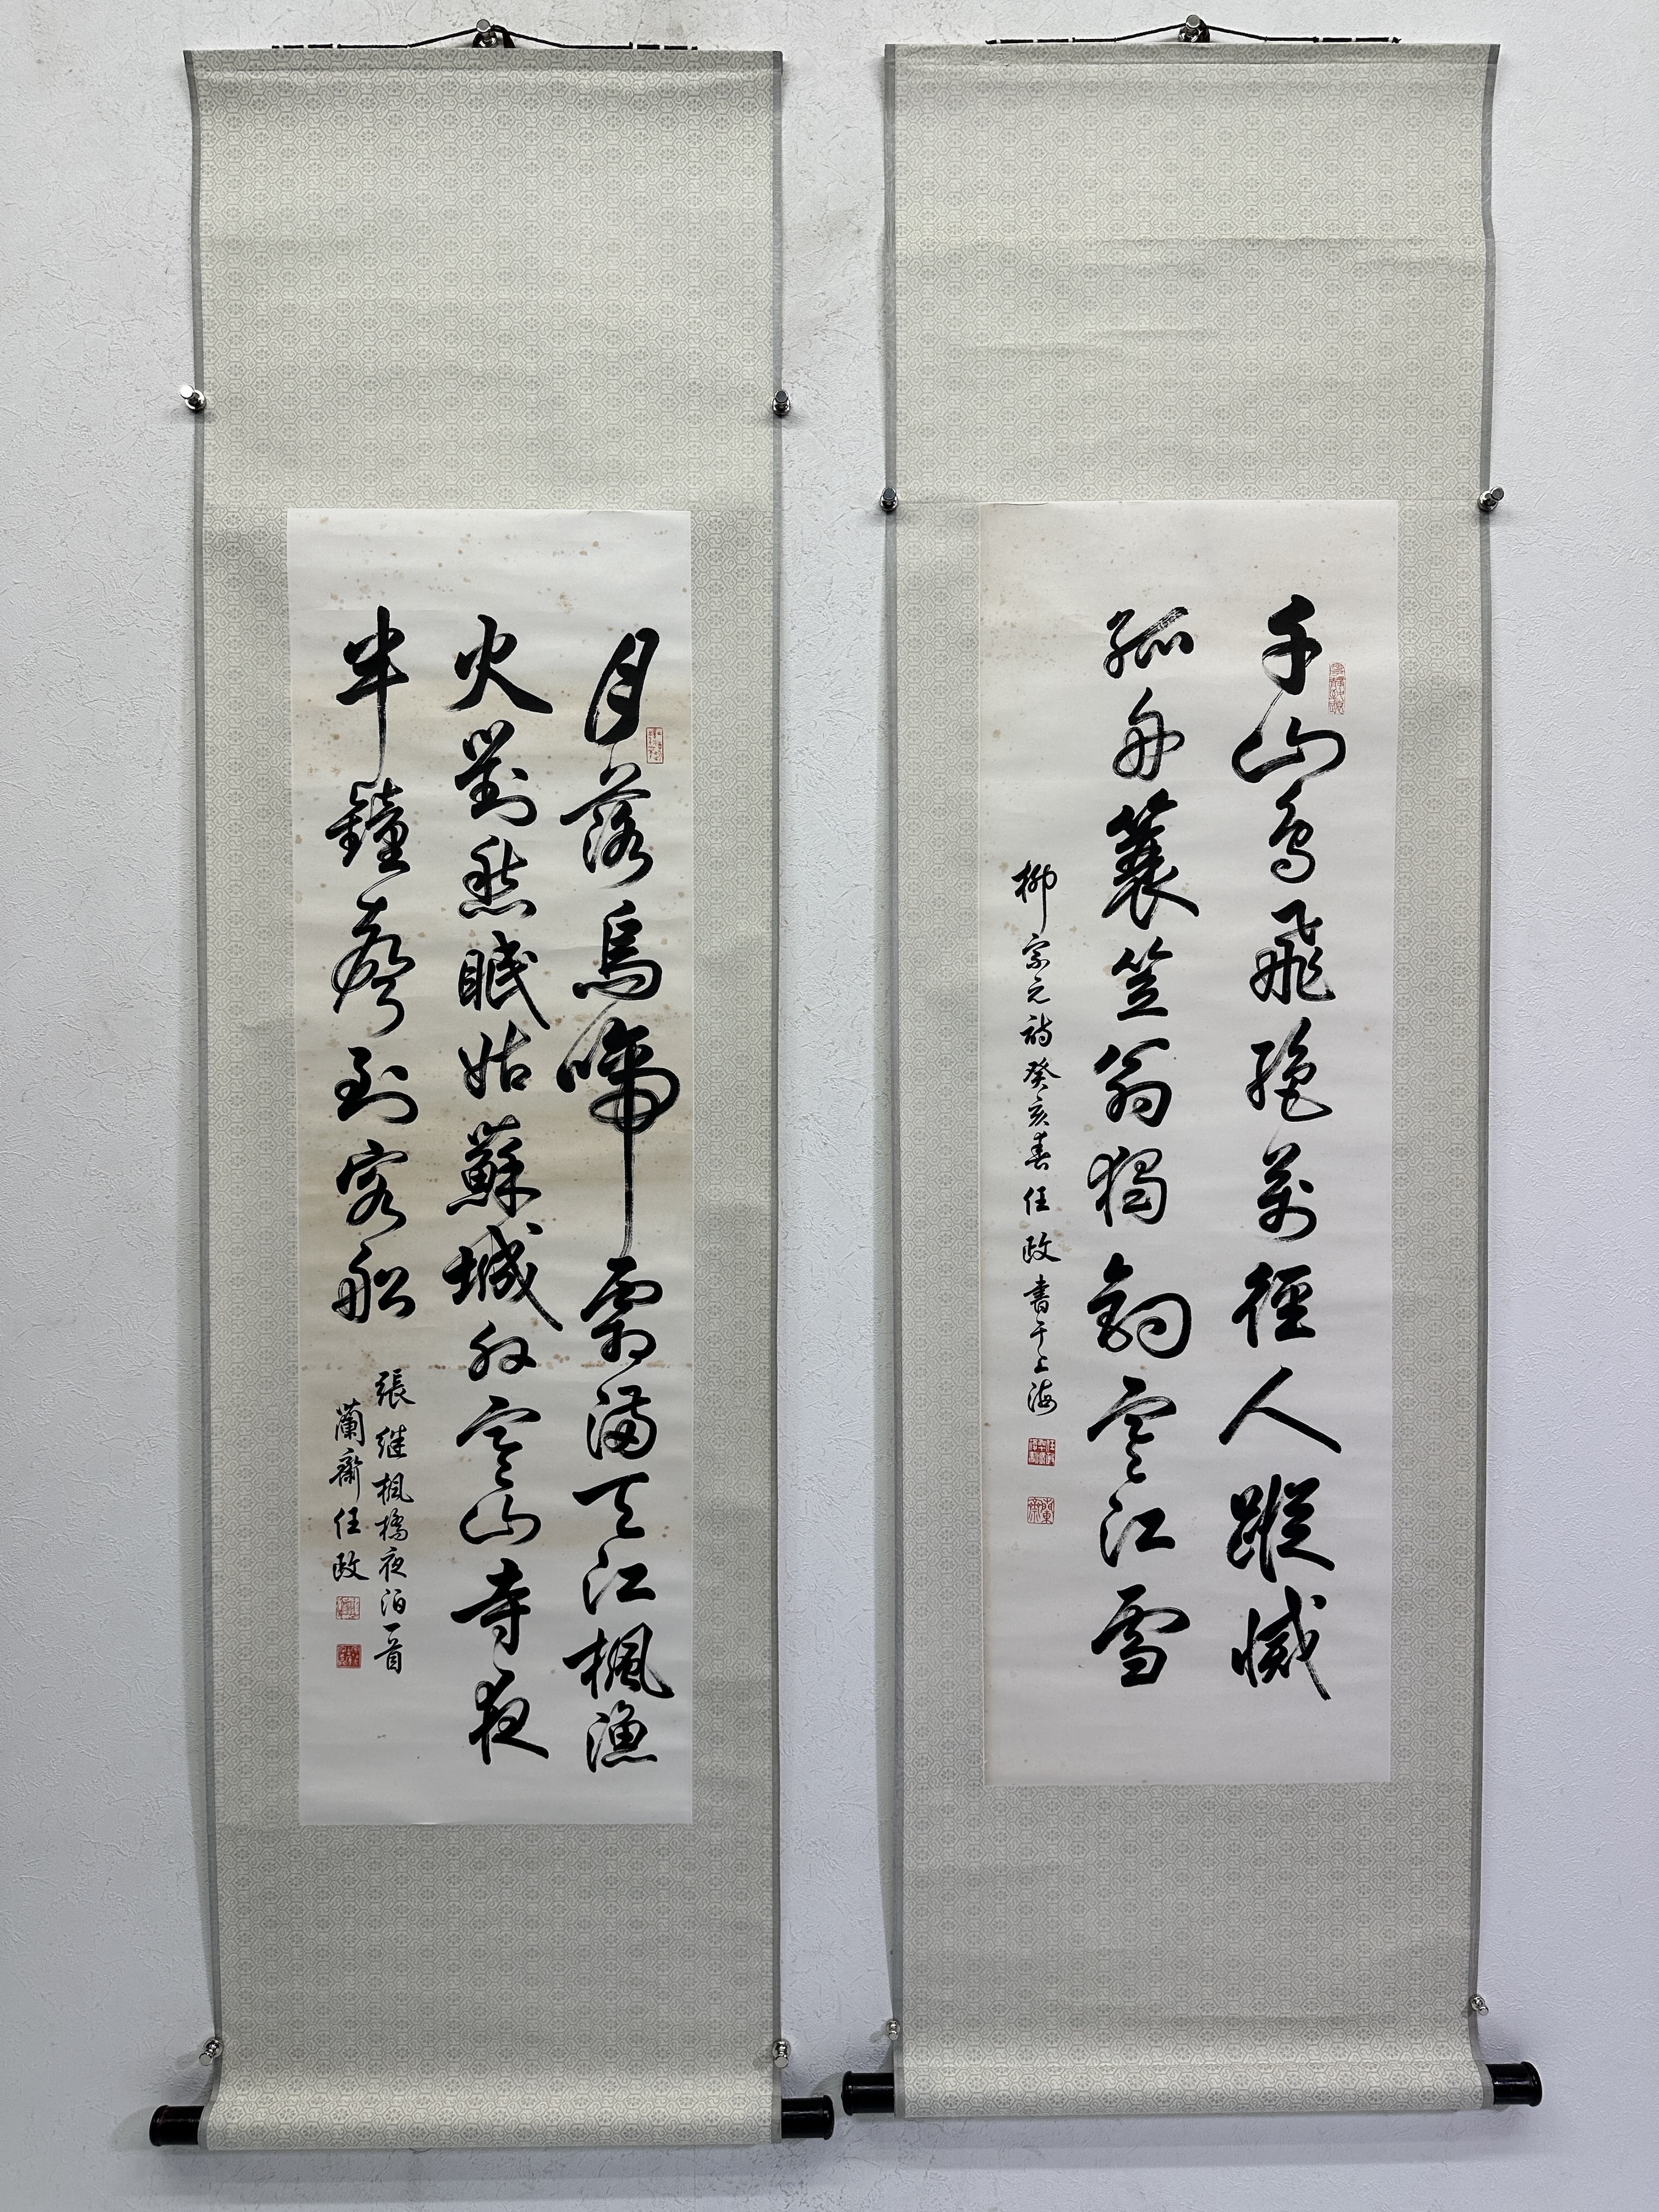 千山鳥飛絶萬徑人蹤滅
孤舟簑笠翁獨釣寒江雪
柳宗元詩癸亥春任政書于上海
月落烏啼霜滿天江楓漁
火對愁眠姑蘇城外寒山寺夜
半鐘聲到客船
張继楓橋夜泊一首
蘭齋任政